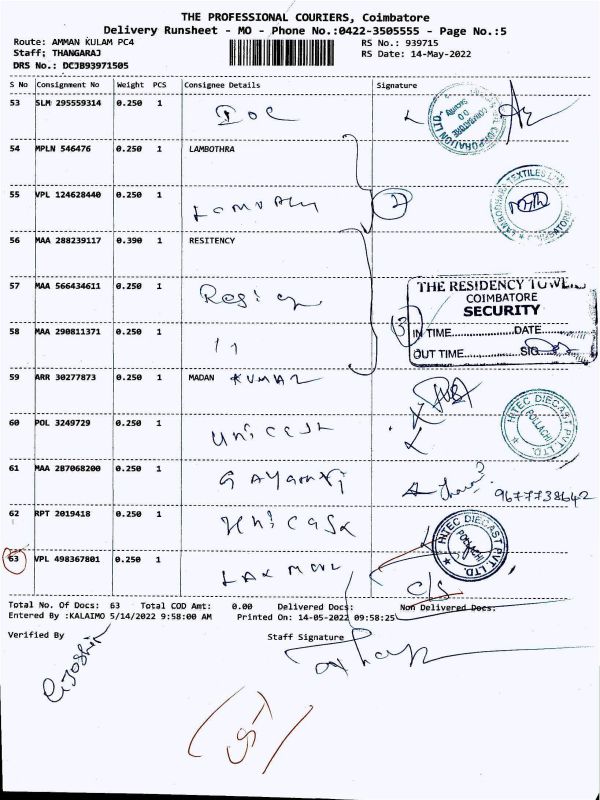 THE PROFESSIONAL COURIERS, Coimbatore
Delivery Runsheet - MO - Phone No.:0422-3505555 - Page No.:5
Route: AMMAN KULAM PC4 RS No.: 939715
Staff; THANGARAJ RS Date: 14-May-2022
DRS No.: DCJB93971505
S No Consignment No Weight PCS Consignee Details Signature
53 SLM 295559314 0.250 1 IOC
54 MPLN 546476 0.250 1 LAMBOTHRA
55 VPL 124628440 0.250 1 2
LAMBODHARA TEXTILES
56 MAA 288239117 0.390 1 RESITENCY
57 MAA 566434611 0.250 1
THE RESIDENCY TOWERS
COIMBATORE
SECURITY
58 MAA 290811371 0.250 1 11 3
IN TIME DATE
OUT TIME SIG
59 ARR 30277873 0.250 1 MADAN KUMAR
60 POL 3249729 0.250 1
HITEC DIECAST PVT. LTD. POLLACHI
61 MAA 287068200 0.250 1 GAYAtRi
9677738642
62 RPT 2019418 0.250 1 UNiCASA
HITEC DIECAST PVT. LTD. POLLACHI
63 VPL 498367801 0.250 1
C/S
Total No. Of Docs: 63 Total COD Amt: 0.00 Delivered Docs: Non Delivered Docs:
Entered By :KALAIMO 5/14/2022 9:58:00 AM Printed On: 14-05-2022 09:58:25
Verified By Staff Signature